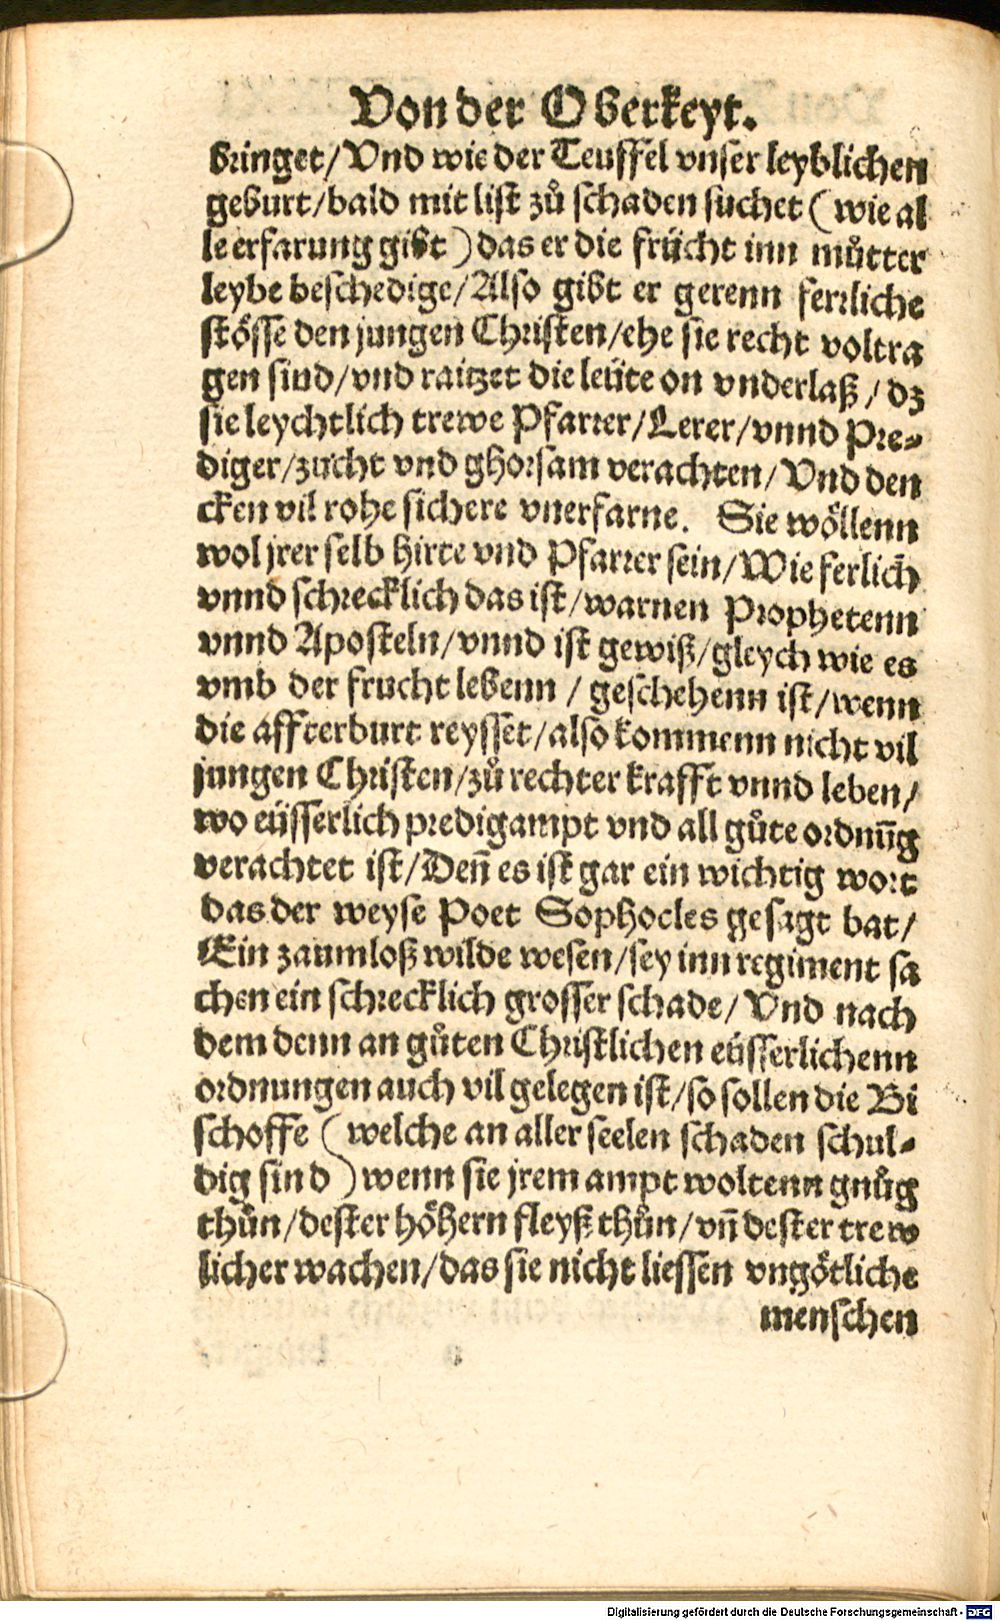 Von der Oberkeyt.
bringet/Vnd wie der Teuffel vnser leyblichen
geburt/bald mit list zů schaden suchet (wie al
le erfarung gibt) das er die frücht inn můtter
leybe beschedige/Also gibt er gerenn ferrliche
stösse den jungen Christen/ehe sie recht voltra
gen sind/vnd raitzet die leüte on vnderlaß/dz
sie leychtlich trewe Pfarrer/Lerer/vnnd Pre-
diger/zucht vnd ghorsam verachten/Vnd den
cken vil rohe sichere vnerfarne. Sie wöllenn
wol jrer selb hirte vnd Pfarrer sein/Wie ferlich
vnnd schrecklich das ist/warnen Prophetenn
vnnd Aposteln/vnnd ist gewiß/gleych wie es
vmb der frucht lebenn/geschehenn ist/wenn
die affterburt reysset/also kommenn nicht vil
jungen Christen/zů rechter krafft vnnd leben/
wo eüsserlich predigampt vnd all gůte ordnūg
verachtet ist/Deñ es ist gar ein wichtig wort
das der weyse Poet Sophocles gesagt hat/
Ein zaumloß wilde wesen/sey inn regiment sa
chen ein schrecklich grosser schade/Vnd nach
dem denn an gůten Christlichen eüsserlichenn
ordnungen auch vil gelegen ist/so sollen die Bi
schoffe (welche an aller seelen schaden schul-
dig sind) wenn sie jrem ampt woltenn gnůg
thůn/dester höhern fleyß thůn/vñ dester trew
licher wachen/das sie nicht liessen vngötliche
menschen
Digitalisierung gefördert durch die Deutsche Forschungsgemeinschaft - DFG